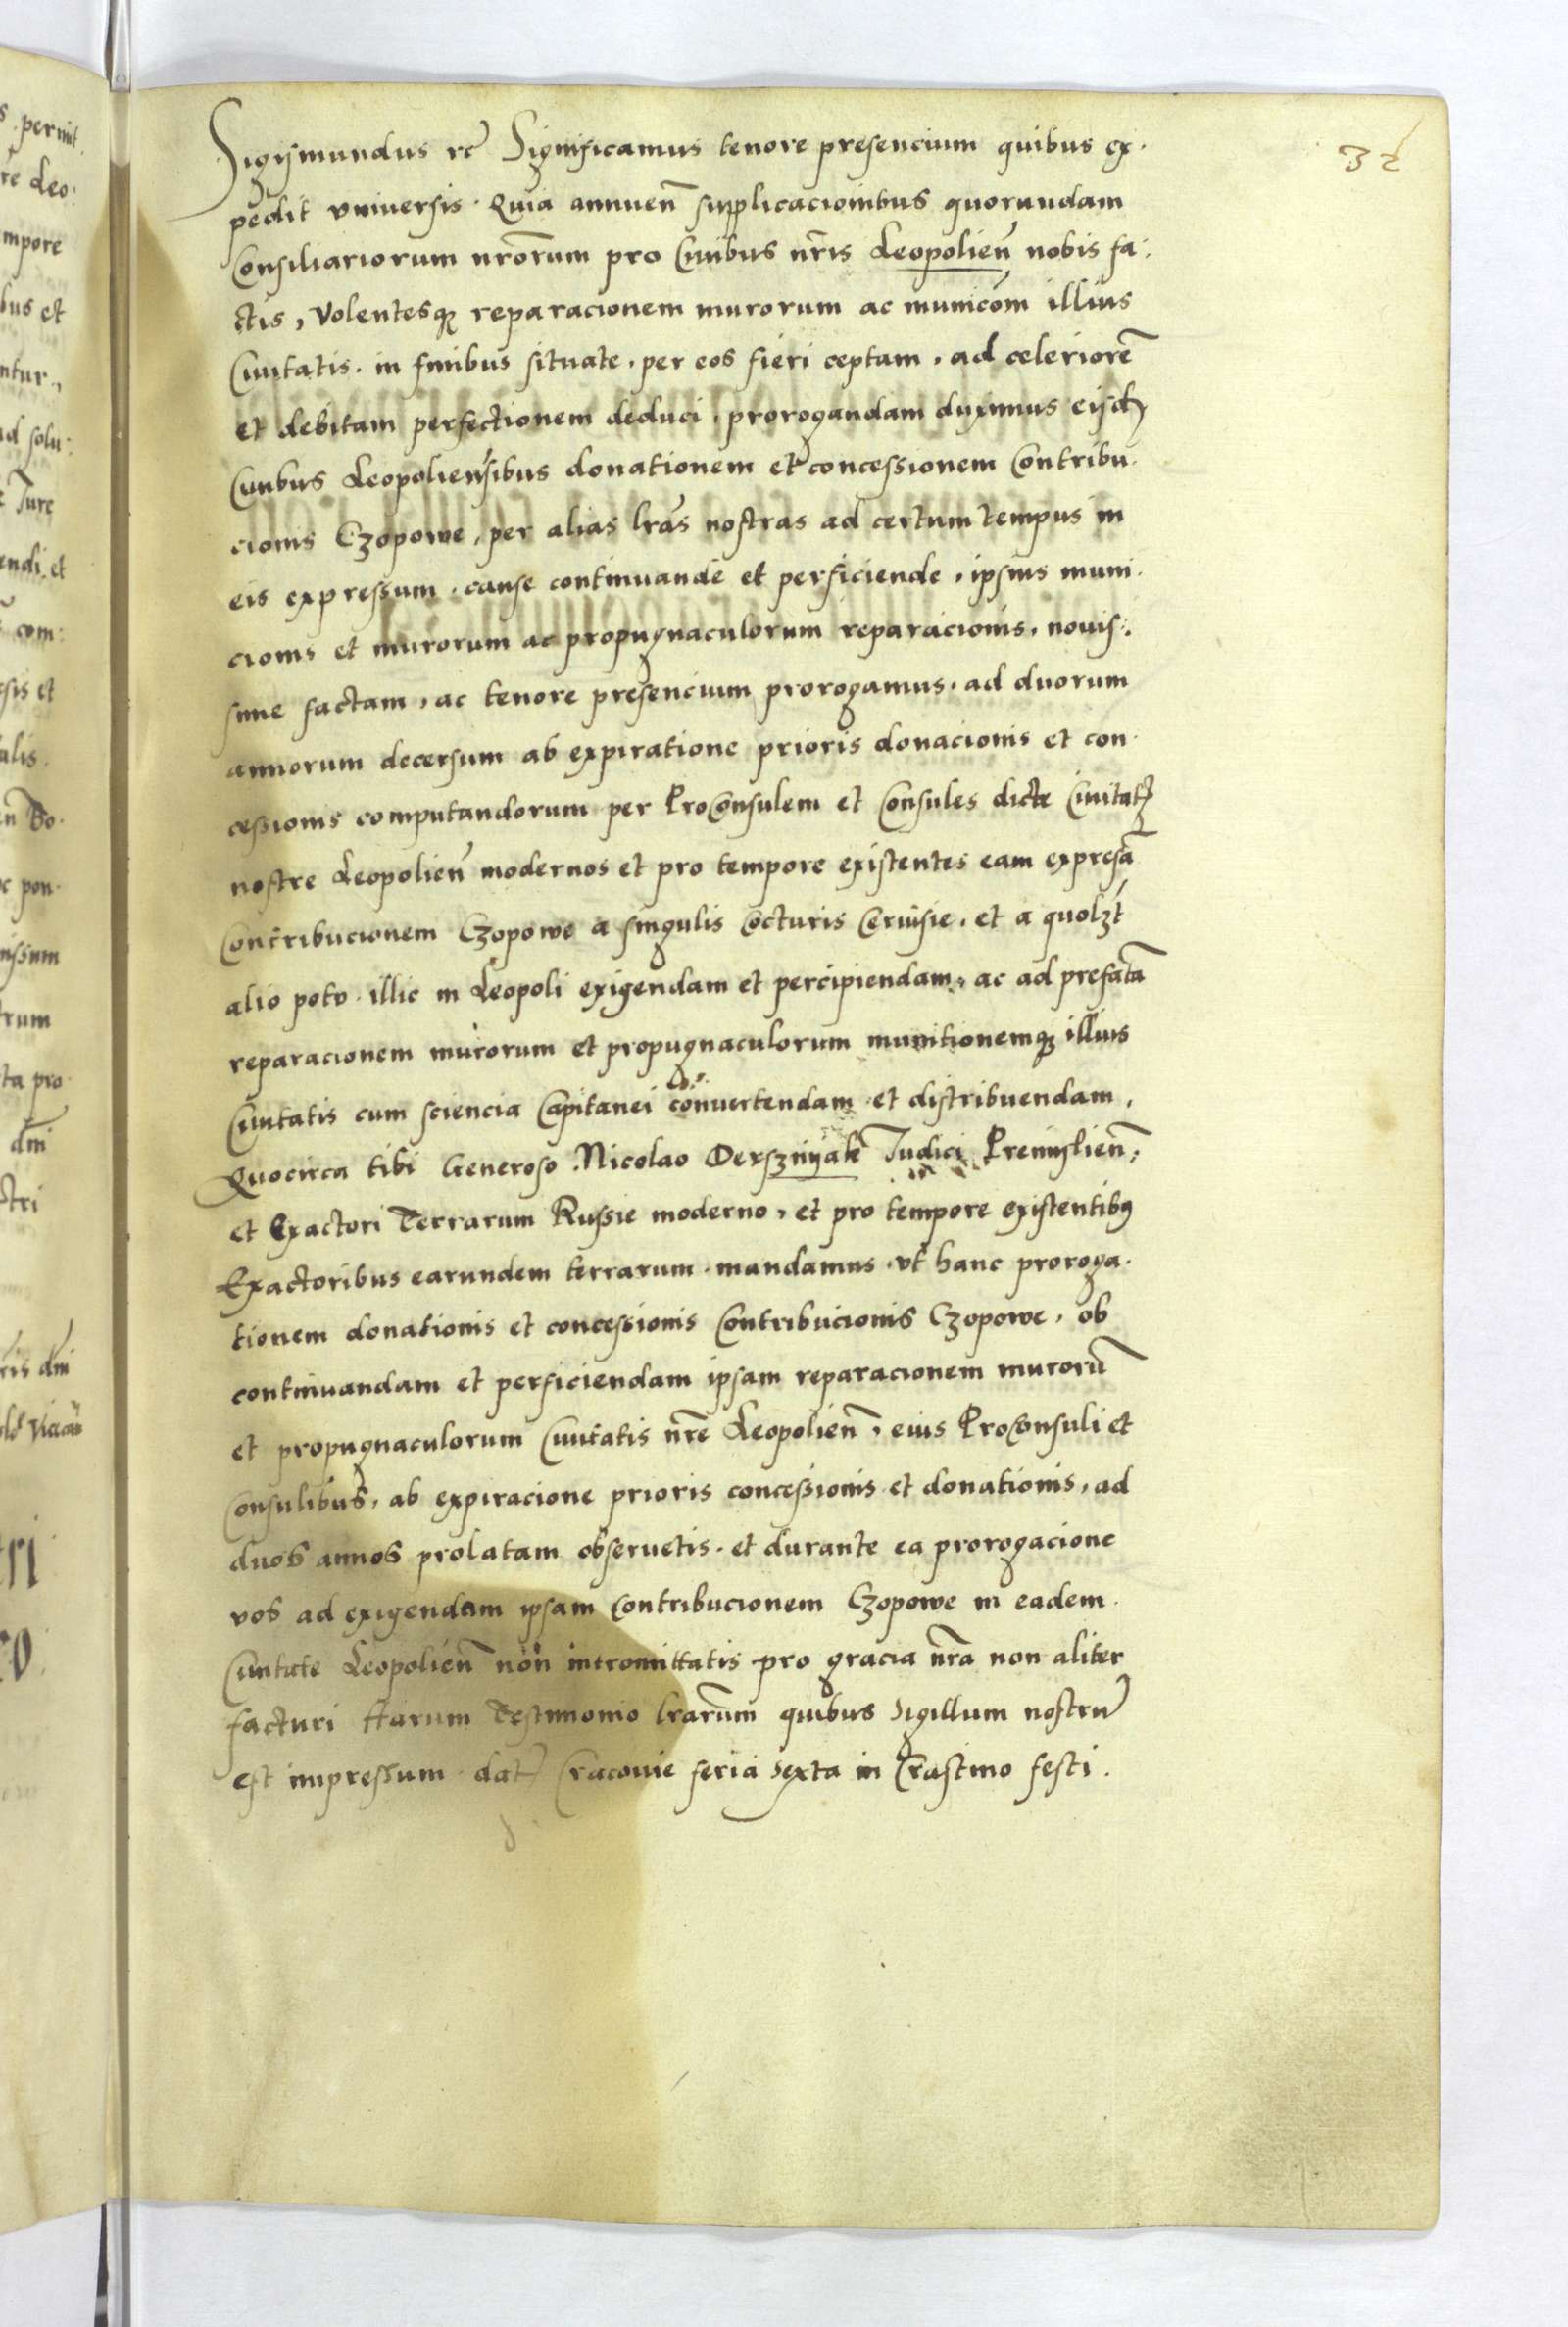 32
Sigismundus rc̃ Significamus tenore presencium quibus ex-
pedit vniuersis. Quia annuen̄ supplicacionibus quorundam
Consiliariorum nr̄orum pro Ciuibus nr̄is Leopolien̄ nobis fa-
ctis, Volentesq3 reparacionem murorum ac municōm illius
Ciuitatis. in finibus situate, per eos fieri ceptam, ad celeriorē
et debitam perfectionem deduci, prorogandam duximus eisdē
Ciuibus Leopoliensibus donationem et concessionem Contribu-
cionis Czopowe, per alias lr̄as nostras ad certum tempus in
eis expressum. causse continuande et perficiende, ipsius muni-
cionis et murorum ac propugnaculorum reparacionis, nouis-
sime factam, ac tenore presencium prorogamus, ad duorum
annorum decersum ab expiratione prioris donacionis et con-
cessionis computandorum per ProConsulem et Consules dicte Ciuitat̄
nostre Leopolien̄ modernos et pro tempore existentes eam expressā
Contribucionem Czopowe a singulis Cocturis Ceruisie, et a quol3t
alio potu illic in Leopoli exigendam et percipiendam, ac ad prefatā
reparacionem murorum et propugnaculorum munitionemq3 illius
Ciuitatis cum sciencia Capitanei conuertendam et distribuendam,
Quocirca tibi Generoso Nicolao Dersznyak Iudici Premislien̄,
et Exactori Terrarum Russie moderno, et pro tempore existentib9
Exactoribus earundem terrarum mandamus vt hanc proroga-
tionem donationis et concessionis Contribucionis Czopowe, ob
continuandam et perficiendam ipsam reparacionem murorū
et propugnaculorum Ciuitatis nr̄e Leopolien̄, eius ProConsuli et
Consulibus, ab expiracione prioris concessionis et donationis, ad
duos annos prolatam obseruetis. et durante ea prorogacione
vos ad exigendam ipsam Contribucionem Czopowe in eadem
Ciuitate Leopolien̄ non intromittatis pro gracia nr̄a non aliter
facturi Harum Testimonio lr̄arum quibus Sigillum nostrū
est impressum dat̄ Cracouie feria sexta in Crastino festi.